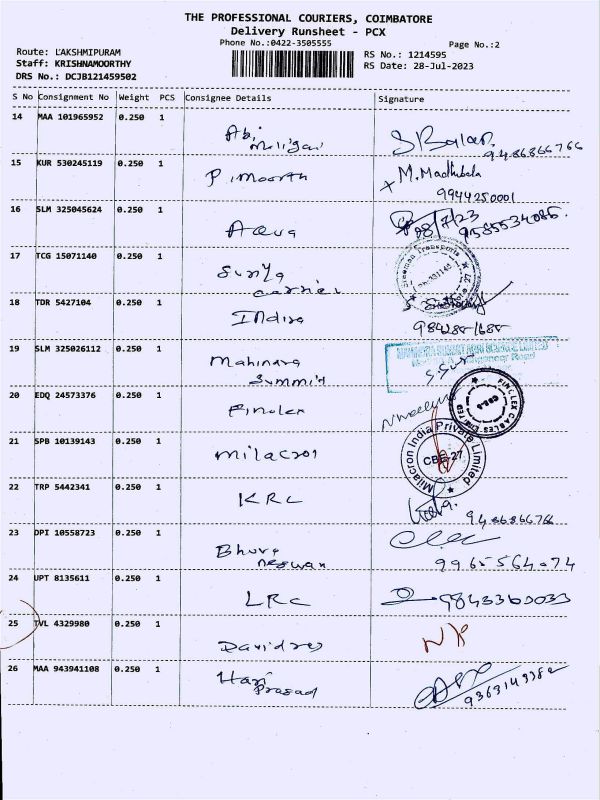 THE PROFESSIONAL COURIERS, COIMBATORE
Delivery Runsheet - PCX
Phone No.:0422-3505555
Page No.:2
Route: LAKSHMIPURAM
Staff: KRISHNAMOORTHY
DRS No.: DCJB121459502
RS No.: 1214595
RS Date: 28-Jul-2023
S No Consignment No Weight PCS Consignee Details Signature
14 MAA 101965952 0.250 1
Abi
9486866766
15 KUR 530245119 0.250 1
P. moorth
M. Madhubala
9944250001
16 SLM 325045624 0.250 1
Aqua
28/7/23
9585534086.
17 TCG 15071140 0.250 1
Surya
carrier
Sreeman Transports
18 TDR 5427104 0.250 1
Indira
19 SLM 325026112 0.250 1
Mahindra
Summit
20 EDQ 24573376 0.250 1
Finolex
FINOLEX CABLES LIMITED
CBE-9
21 SPB 10139143 0.250 1
Milacron
Milacron India Private Limited
CBE-27
22 TRP 5442341 0.250 1
KRC
9486866766
23 DPI 10558723 0.250 1
Bhuva
neswari
9965564074
24 UPT 8135611 0.250 1
LRC
9843360033
25 TVL 4329980 0.250 1
26 MAA 943941108 0.250 1
Hari
Prasad